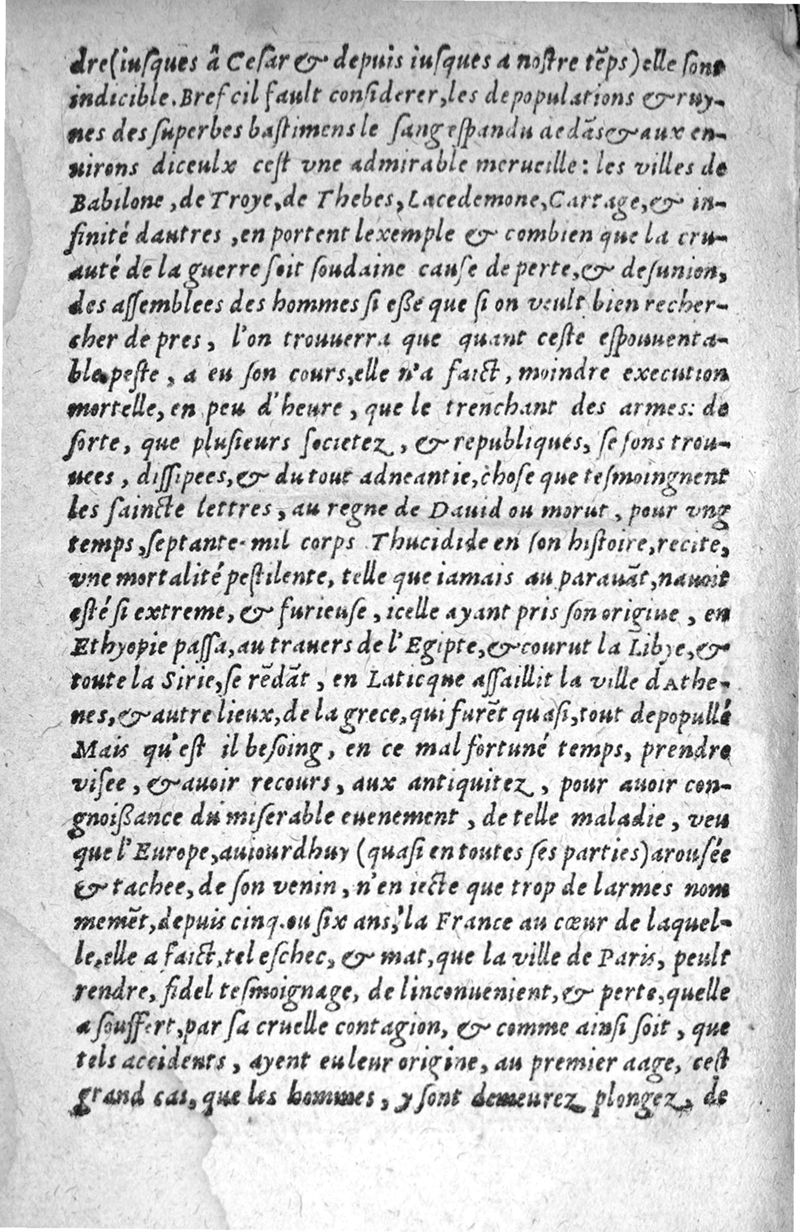 dre(iusques â Cesar & depuis iusques a nostre tẽps) elle sont
indicible. Bref cil fault considerer, les depopulations & ruy-
nes des superbes bastimens le sang espandu dedãs & aux en-
uirons diceulx cest vne admirable merueille: les villes de
Babilone, de Troye, de Thebes, Lacedemone, Cartage, & in-
finité dautres, en portent lexemple & combien que la cru-
auté de la guerre soit soudaine cause de perte, & desunion,
des assemblees des hommes si eße que si on veult bien recher-
cher de pres, l'on trouuerra que quant ceste espouuenta-
ble peste, a eu son cours, elle n'a faict, moindre execution
mortelle, en peu d'heure, que le trenchant des armes: de
sorte, que plusieurs societez, & republiques, se sons trou-
uees, dissipees, & du tout adneantie, chose que tesmoingnent
les saincte lettres, au regne de Dauid ou morut, pour vng
temps, septante-mil corps Thucidide en son histoire, recite,
vne mortalité pestilente, telle que iamais au parauãt, nauoit
esté si extreme, & furieuse, icelle ayant pris son origiue, en
Ethyopie passa, au trauers de l'Egipte, & courut la Libye, &
toute la Sirie, se rẽdãt, en Laticque assaillit la ville dAthe-
nes, & autre lieux, de la grece, qui furẽt quasi, tout depopullé
Mais qu'est il besoing, en ce mal fortuné temps, prendre
visee, & auoir recours, aux antiquitez, pour auoir con-
gnoißance du miserable euenement, de telle maladie, veu
que l'Europe, auiourdhuy (quasi en toutes ses parties) arousée
& tachee, de son venin, n'en iecte que trop de larmes nom
memẽt, depuis cinq ou six ans, la France au cœur de laquel-
le, elle a faict, tel eschec, & mat, que la ville de Paris, peult
rendre, fidel tesmoignage, de linconuenient, & perte, quelle
a souffert, par sa cruelle contagion, & comme ainsi soit, que
tels accidents, ayent eu leur origine, au premier aage, cest
grand cas, que les hommes, y sont demeurez plongez, de